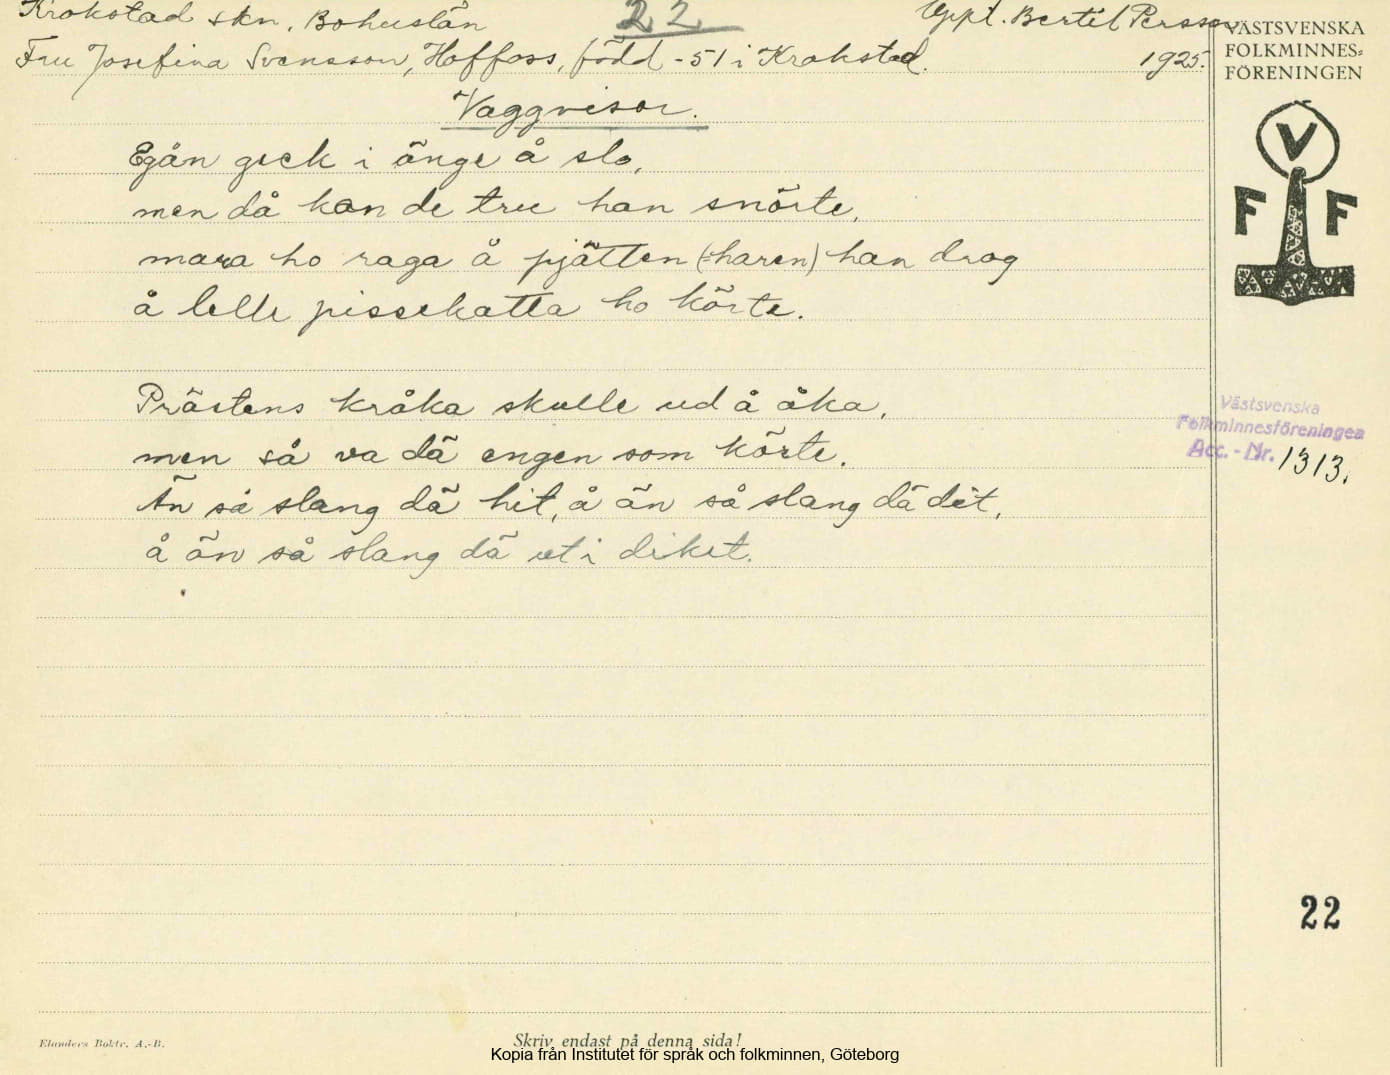 Krokstad skn, Bohuslän
22
Uppt. Bertil Persson
Fru Josefina Svensson, Hoffoss, född -51 i Krokstad.
1925.
VÄSTSVENSKA
FOLKMINNES=
FÖRENINGEN
Vaggvisor.
V
F F
Egån geck i änge å slo,
men då kan de tru han snörte,
mara ho raga å pjätten (:haren) han drog
å lelle pissekatta ho körte.
Prästens kråka skulle ud å åka,
men så va dä engen som körte.
Än så slang dä hit, å än så slang dä dit,
å än så slang dä ut i diket.
Västsvenska
Folkminnesföreningen
Acc. - Nr. 1313.
22
Elanders Boktr. A.-B.
Skriv endast på denna sida!
Kopia från Institutet för språk och folkminnen, Göteborg